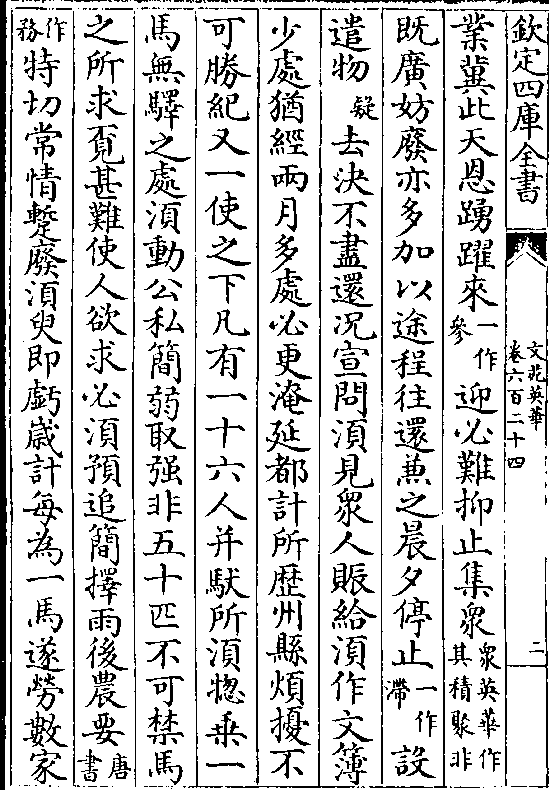 欽定四庫全書
文苑英華
卷六百二十四
二
業冀此天恩踴躍來一作參迎必難抑止集衆衆英華作其積聚非
既廣妨廢亦多加以途程往還兼之晨夕停止一作滯設
遣物疑去決不盡還況宣問須見衆人賑給須作文簿
少處猶經兩月多處必更淹延都計所歷州縣煩擾不
可勝紀又一使之下凡有一十六人并䭾所須㹅乗一
馬無驛之處須動公私簡弱取强非五十匹不可禁馬
之所求覔甚難使人欲求必須預追簡擇雨後農要唐書
作務特切常情蹔廢須臾即虧歳計每為一馬遂勞數家